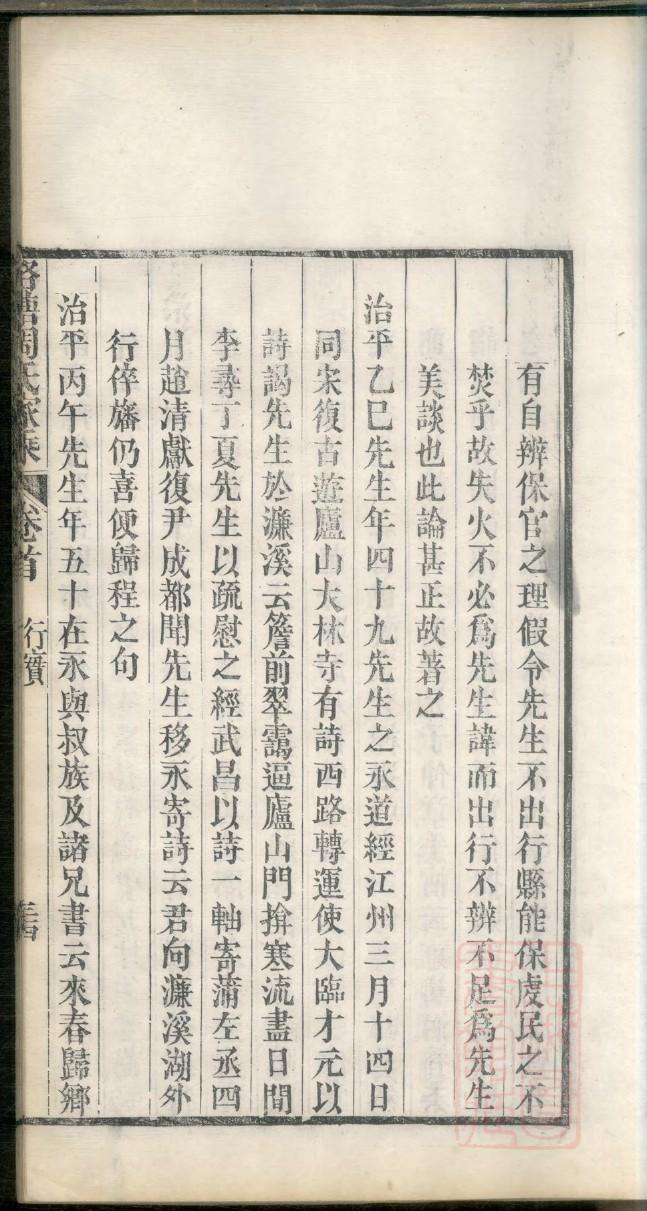 有自辨保官之理假令先生不出行縣能保虔民之不
焚乎故失火不必爲先生諱而出行不辨不足爲先生
美談也此論甚正故著之
治平乙巳先生年四十九先生之永道經江州三月十四日
同宋復古遊廬山大林寺有詩西路轉運使大臨才元以
詩謁先生於濂溪云簷前翠靄逼廬山門揜寒流盡日間
李尋丁夏先生以疏慰之經武昌以詩一軸寄蒲左丞四
月趙清獻復尹成都聞先生移永寄詩云君向濂溪湖外
行倅旛仍喜便歸程之句
治平丙午先生年五十在永與叔族及諸兄書云來春歸鄉
周氏家乘 卷首 行實